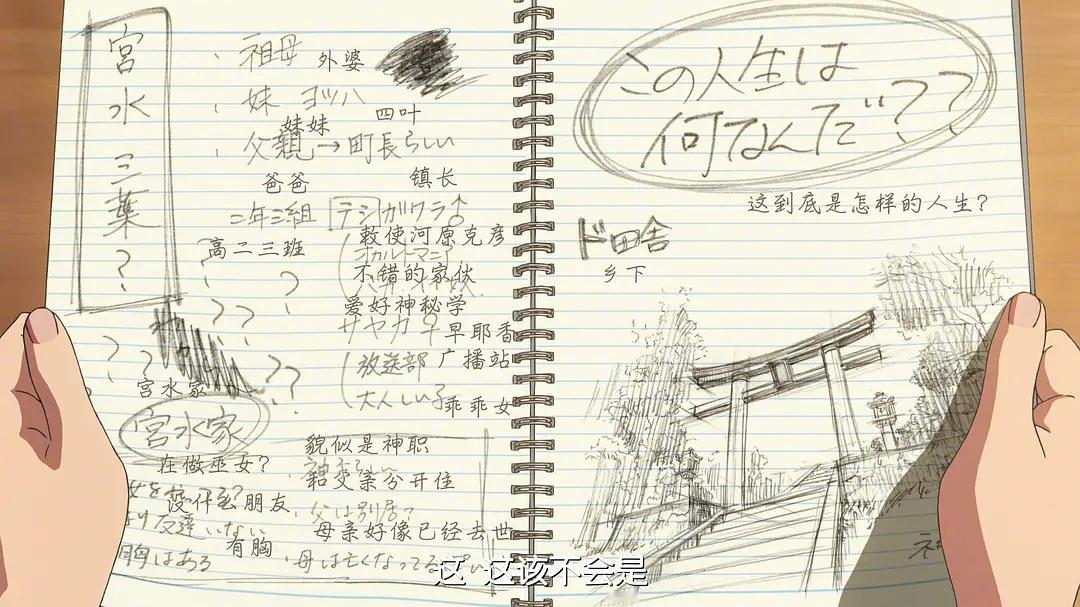 宮水三葉?
・祖母
外婆
・妹 ヨツハ
妹妹 四叶
・父親→町長らしい
爸爸 镇长
二年三組
高二三班
テシガワラ♂
敕使河原克彦
オカルトマニア
不错的家伙
爱好神秘学
サヤカ♀
早耶香
放送部
广播站
大人しい子
乖乖女
? ?
? ?
? ? ? ?
宮水家
宮水家
在做巫女?
貌似是神职
和父亲分开住
没什么朋友
・父は別居?
友達いない
母亲好像已经去世
有胸
胸はある
・母は亡くなってるっぽい
この人生は
何なんだ??
这到底是怎样的人生?
ド田舎
乡下
这 这该不会是